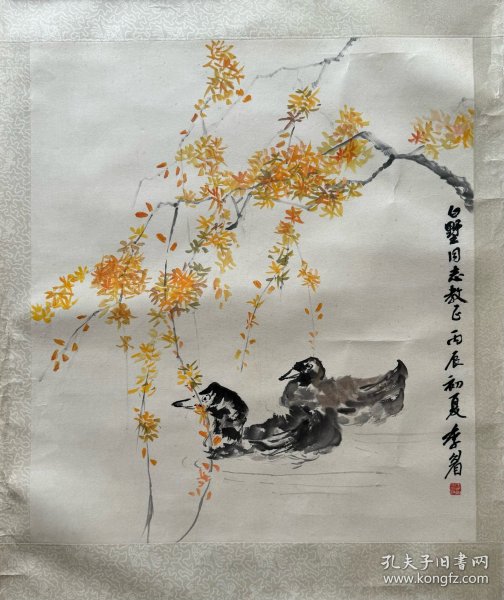 白墅同志教正 丙辰初夏 李眉
孔夫子旧书网
www.kongfz.com